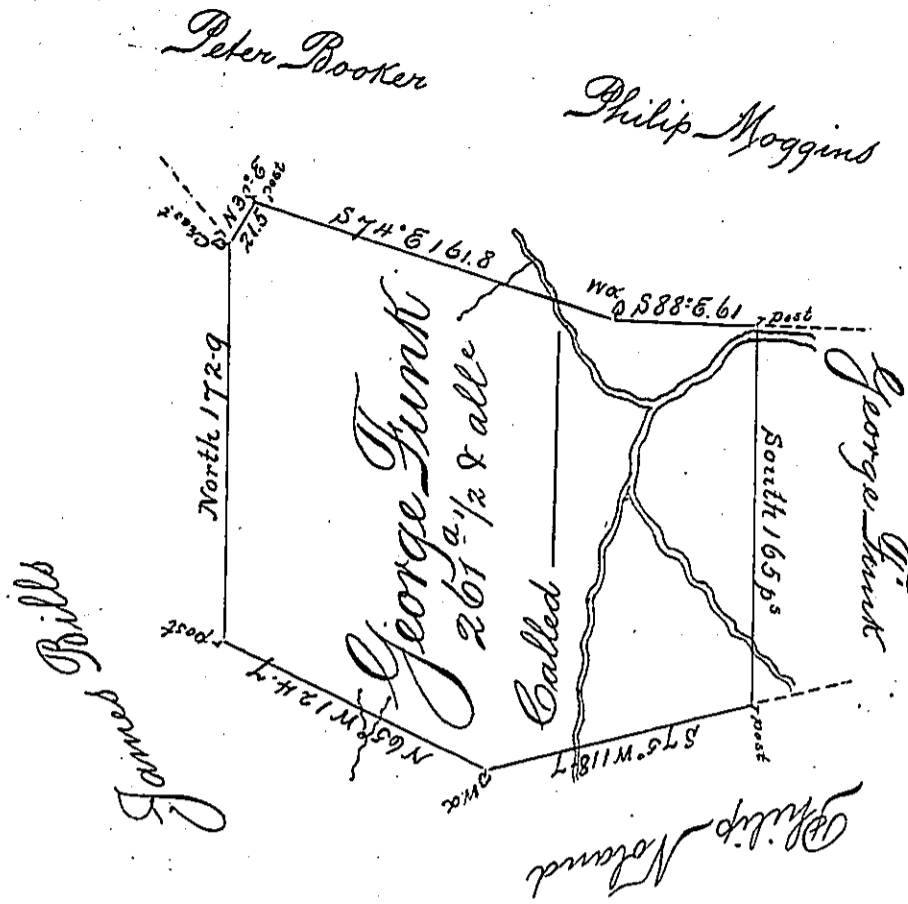 Peter Booker
Philip Moggins
Chest.
N 37° E
21.5
post
S 74° E 161.8
wo
S 88° E 61
post
North 172.9
George Funk
261 a 1/2 & alle
Called
South 165 ps
George Funk
James Bills
post
N 65° W 124.7
wo
S 75° W 118.7
post
Philip Noland